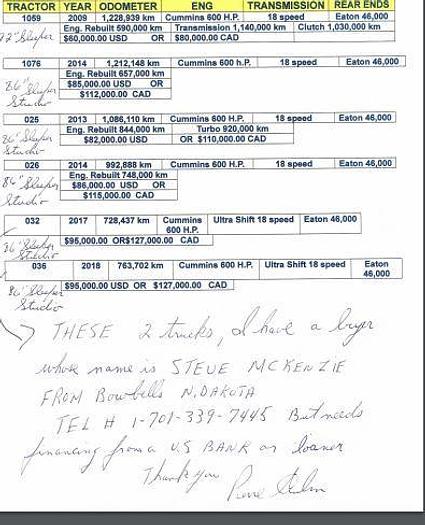 TRACTOR YEAR ODOMETER ENG TRANSMISSION REAR ENDS
1059 2009 1,228,939 km Cummins 600 H.P. 18 speed Eaton 46,000
72" Sleeper Eng. Rebuilt 590,000 km Transmission 1,140,000 km Clutch 1,030,000 km
$60,000.00 USD OR $80,000.00 CAD
1076 2014 1,212,148 km Cummins 600 h.P. 18 speed Eaton 46,000
86" Sleeper Eng. Rebuilt 657,000 km
Studio $85,000.00 USD OR
$112,000.00 CAD
025 2013 1,086,110 km Cummins 600 H.P. 18 speed Eaton 46,000
86" Sleeper Eng. Rebuilt 844,000 km Turbo 920,000 km
Studio $82,000 USD OR $110,000.00 CAD
026 2014 992,888 km Cummins 600 H.P. 18 speed Eaton 46,000
86" Sleeper Eng. Rebuilt 748,000 km
$86,000.00 USD OR
Studio $115,000.00 CAD
032 2017 728,437 km Cummins 600 H.P. Ultra Shift 18 speed Eaton 46,000
86" Sleeper Studio $95,000.00 OR$127,000.00 CAD
036 2018 763,702 km Cummins 600 H.P. Ultra Shift 18 speed Eaton 46,000
86" Sleeper Studio $95,000.00 USD OR $127,000.00 CAD
THESE 2 trucks, I have a buyer
whose name is STEVE MCKENZIE
FROM Bowbells N.DAKOTA
TEL # 1-701-339-7445 But needs
financing from a U.S BANK or loaner
Thank you
Pierre